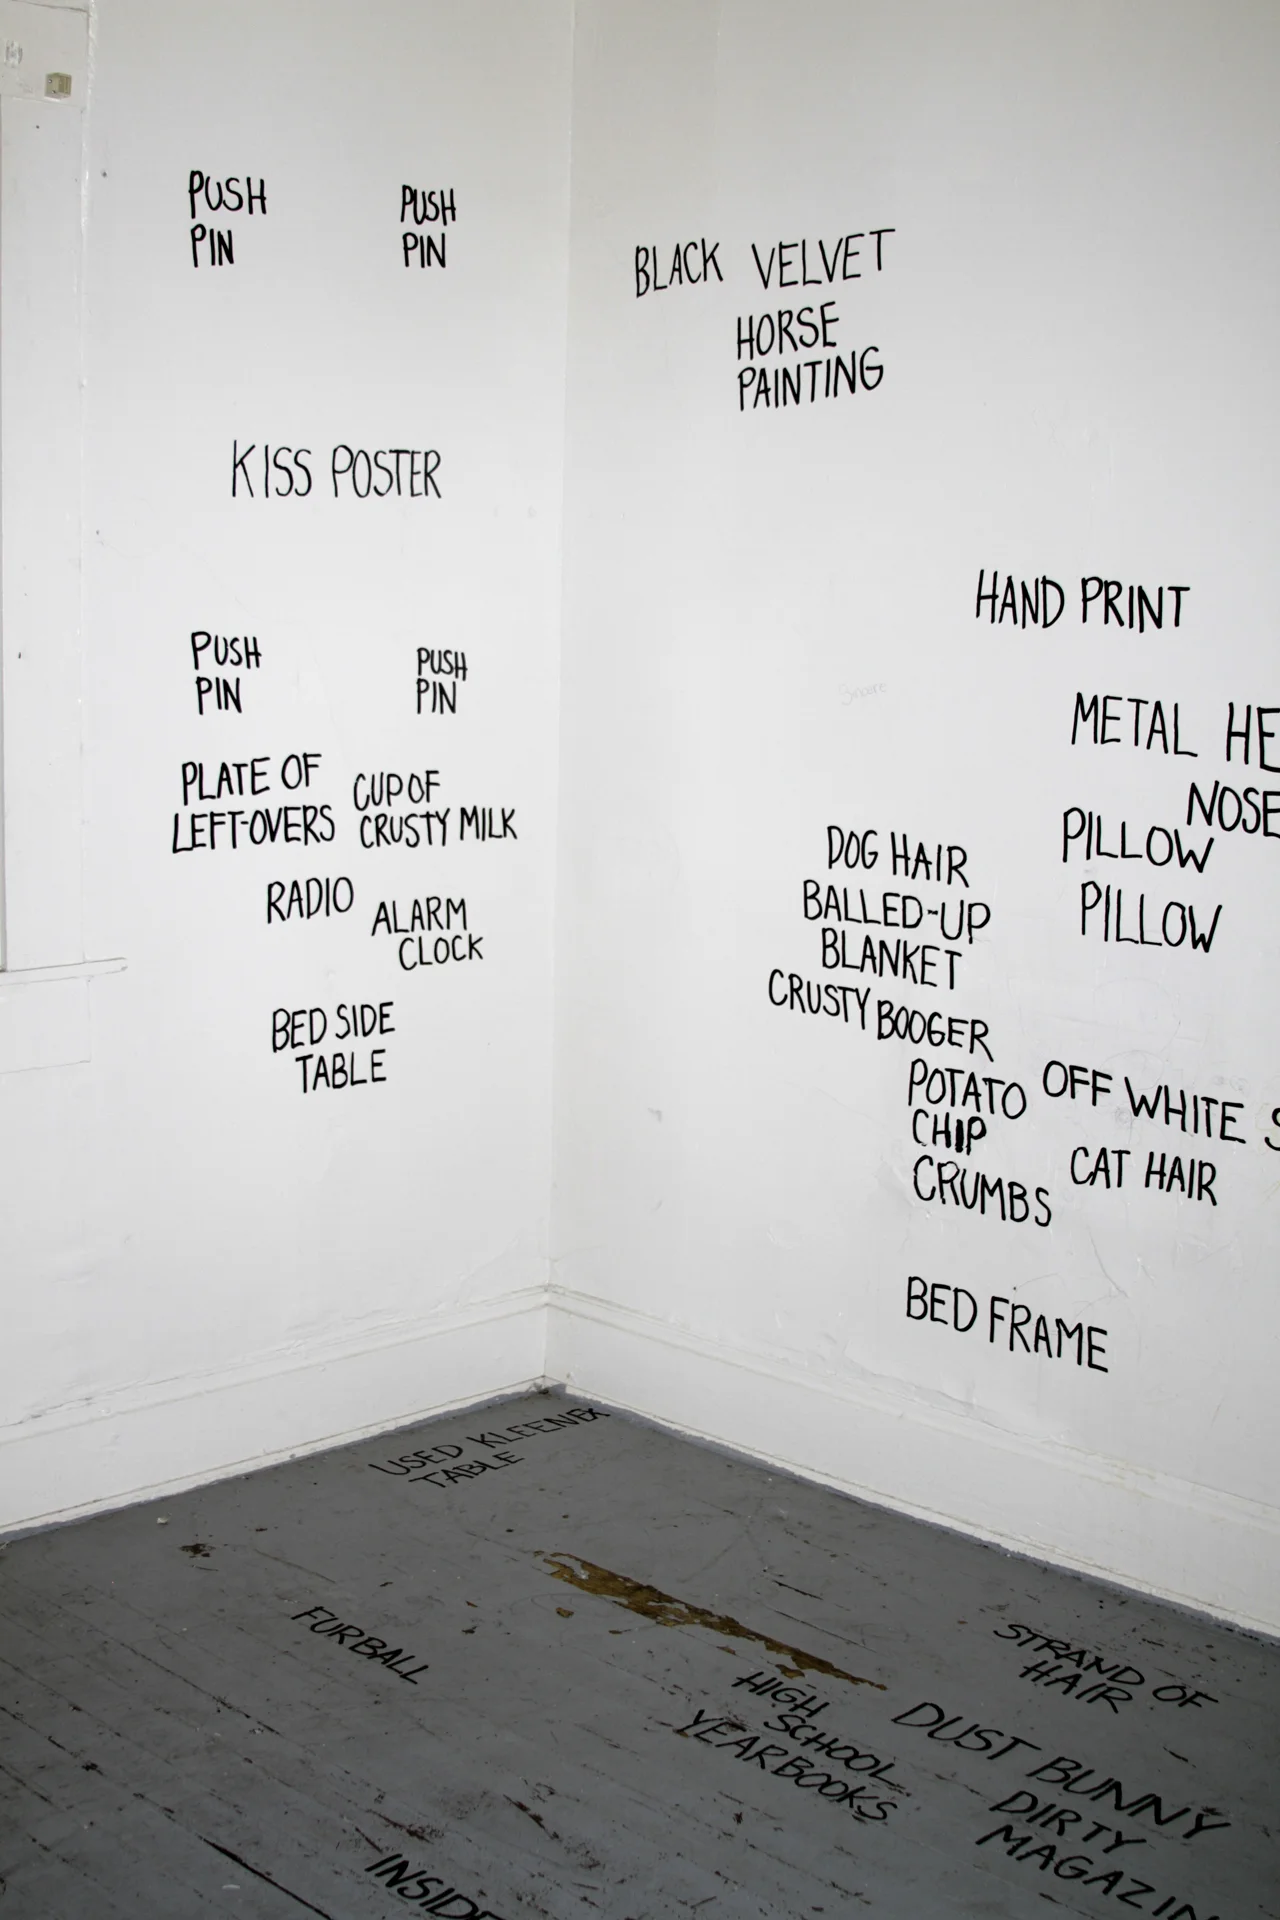 PUSH
PIN
PUSH
PIN
KISS POSTER
PUSH
PIN
PUSH
PIN
PLATE OF
LEFT-OVERS
CUP OF
CRUSTY MILK
RADIO
ALARM
CLOCK
BED SIDE
TABLE
BLACK VELVET
HORSE
PAINTING
HAND PRINT
METAL HE
NOSE
PILLOW
PILLOW
DOG HAIR
BALLED-UP
BLANKET
CRUSTY BOOGER
POTATO
CHIP
CRUMBS
OFF WHITE S
CAT HAIR
BED FRAME
USED KLEENEX
TABLE
FURBALL
STRAND OF
HAIR
HIGH
SCHOOL
YEARBOOKS
DUST BUNNY
DIRTY
MAGAZIN
INSIDE